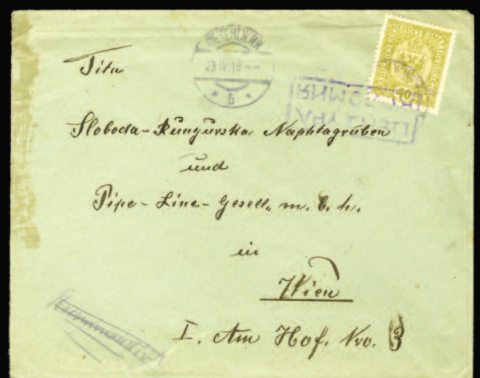 23 IV 19
b
40
Titu
Sloboda-Rungurska Naphtagruben
und
Pipe-Line-Gesell. m. b. h.
in
Wien
I. Am Hof. Nro. 3